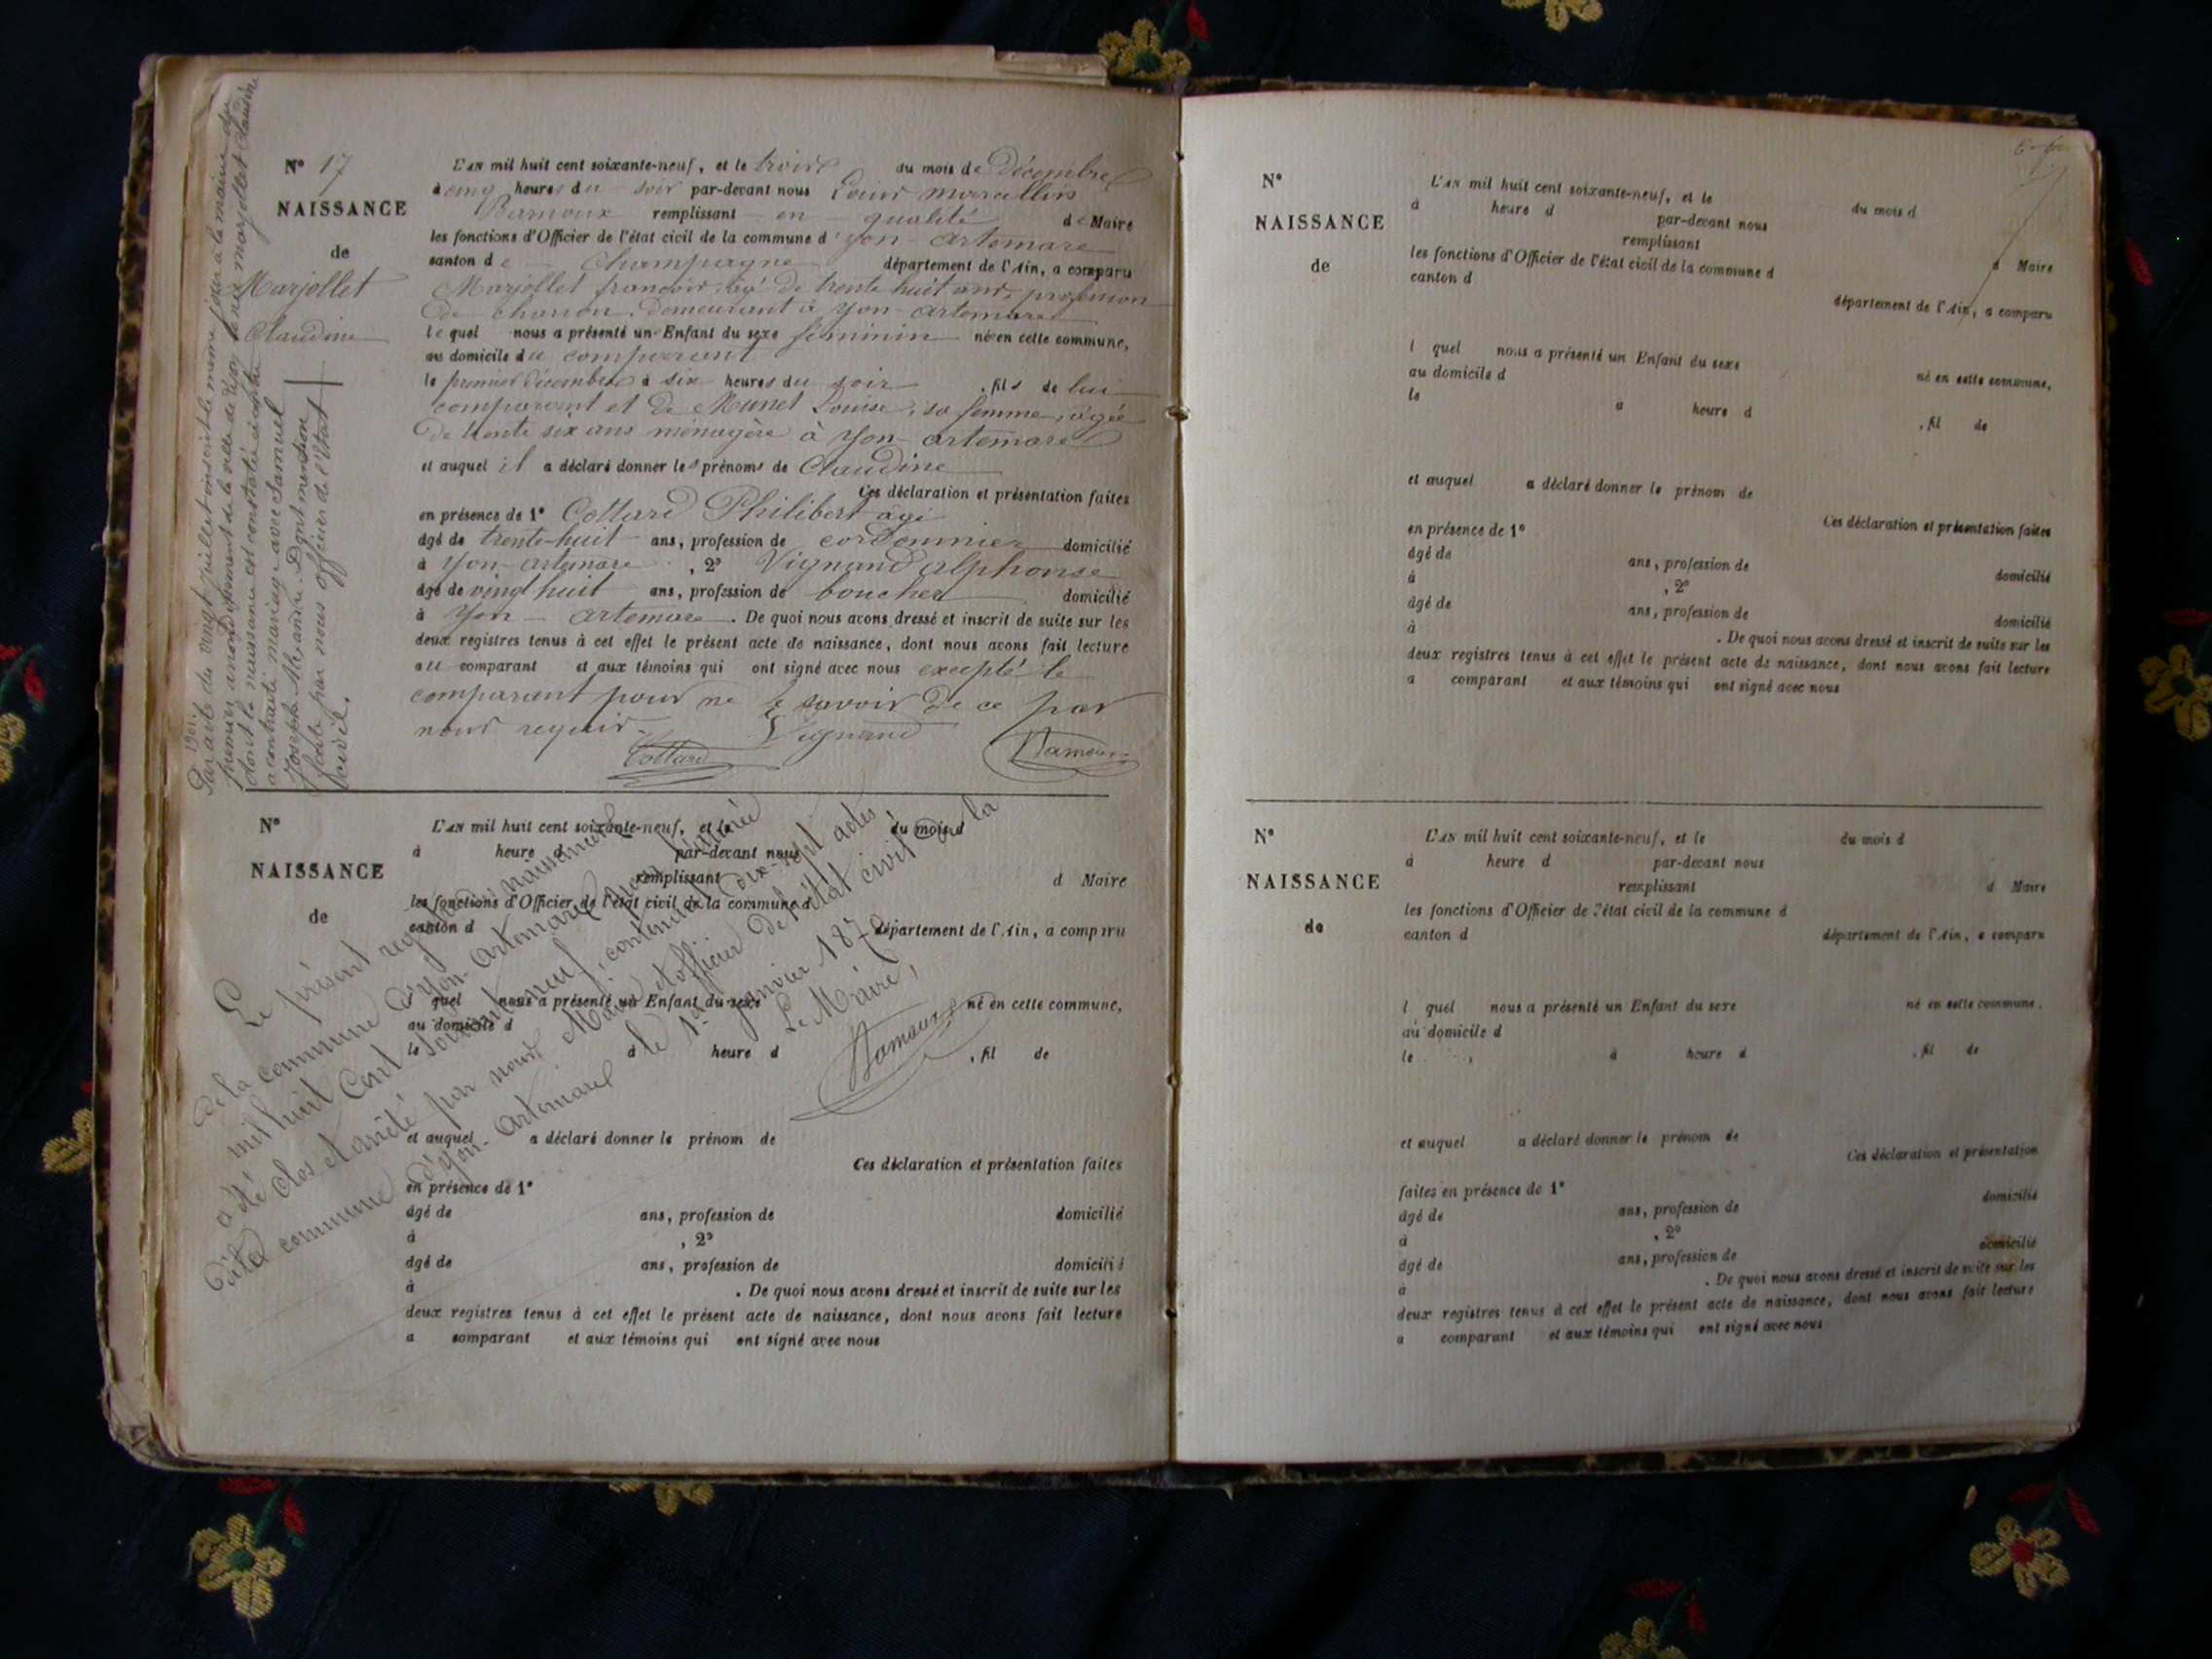 N° 17
NAISSANCE
de
Marjollet
Claudine
L'AN mil huit cent soixante-neuf, et le trois du mois de Décembre
à cinq heures du soir par-devant nous Louis Marcellin
remplissant en qualité de Maire
les fonctions d'Officier de l'état civil de la commune d'yon-artemare
canton de Champagne département de l'Ain, a comparu
Marjollet françois, agé de trente huit ans, profession
de charron, demeurant à yon-artemare
lequel nous a présenté un Enfant du sexe féminin né en cette commune,
au domicile du comparant
le premier Décembre à six heures du soir, fils de lui
comparant et de Munet Louise, sa femme, agée
de trente six ans ménagère à yon-artemare
et auquel il a déclaré donner les prénoms de Claudine
Ces déclaration et présentation faites
en présence de 1° Cottard Philibert agé
âgé de trente-huit ans, profession de cordonnier domicilié
à yon-artemare, 2° Vignand alphonse
âgé de vingt huit ans, profession de boucher domicilié
à yon-artemare. De quoi nous avons dressé et inscrit de suite sur les
deux registres tenus à cet effet le présent acte de naissance, dont nous avons fait lecture
au comparant et aux témoins qui ont signé avec nous excepté le
comparant pour ne le savoir de ce par
nous requis.
Vignand
Cottard
Par acte du vingt juillet 1901 inscrit le même jour à la mairie du
premier arrondissement de la ville de Lyon
dont la naissance est constatée ci-contre
a contracté mariage avec Samuel
Joseph Alexandre Dont mention
faite par nous officier de l'état
civil.
N°
NAISSANCE
de
L'AN mil huit cent soixante-neuf, et le du mois d
à heure d par-devant nous
remplissant d Maire
les fonctions d'Officier de l'état civil de la commune d
canton d département de l'Ain, a comparu
l quel nous a présenté un Enfant du sexe né en cette commune,
au domicile d
le à heure d , fil de
et auquel a déclaré donner le prénom de
Ces déclaration et présentation faites
en présence de 1°
âgé de ans, profession de domicilié
à , 2°
âgé de ans, profession de domicilié
à . De quoi nous avons dressé et inscrit de suite sur les
deux registres tenus à cet effet le présent acte de naissance, dont nous avons fait lecture
a comparant et aux témoins qui ont signé avec nous
Le présent registre des naissances
de la commune d'yon-artemare pour l'année
mil huit cent soixante neuf, contenant dix-sept actes,
a été clos et arrêté par nous, Maire et officier de l'état civil de la
commune d'yon-artemare le 1er janvier 1870
Le Maire,
N°
NAISSANCE
de
L'AN mil huit cent soixante-neuf, et le du mois d
à heure d par-devant nous
remplissant d Maire
les fonctions d'Officier de l'état civil de la commune d
canton d département de l'Ain, a comparu
l quel nous a présenté un Enfant du sexe né en cette commune,
au domicile d
le à heure d , fil de
et auquel a déclaré donner le prénom de
Ces déclaration et présentation faites
en présence de 1°
âgé de ans, profession de domicilié
à , 2°
âgé de ans, profession de domicilié
à . De quoi nous avons dressé et inscrit de suite sur les
deux registres tenus à cet effet le présent acte de naissance, dont nous avons fait lecture
a comparant et aux témoins qui ont signé avec nous
N°
NAISSANCE
de
L'AN mil huit cent soixante-neuf, et le du mois d
à heure d par-devant nous
remplissant d Maire
les fonctions d'Officier de l'état civil de la commune d
canton d département de l'Ain, a comparu
l quel nous a présenté un Enfant du sexe né en cette commune.
au domicile d
le à heure d , fil de
et auquel a déclaré donner le prénom de
Ces déclaration et présentation
faites en présence de 1°
âgé de ans, profession de domicilié
à , 2°
âgé de ans, profession de domicilié
à . De quoi nous avons dressé et inscrit de suite sur les
deux registres tenus à cet effet le présent acte de naissance, dont nous avons fait lecture
a comparant et aux témoins qui ont signé avec nous